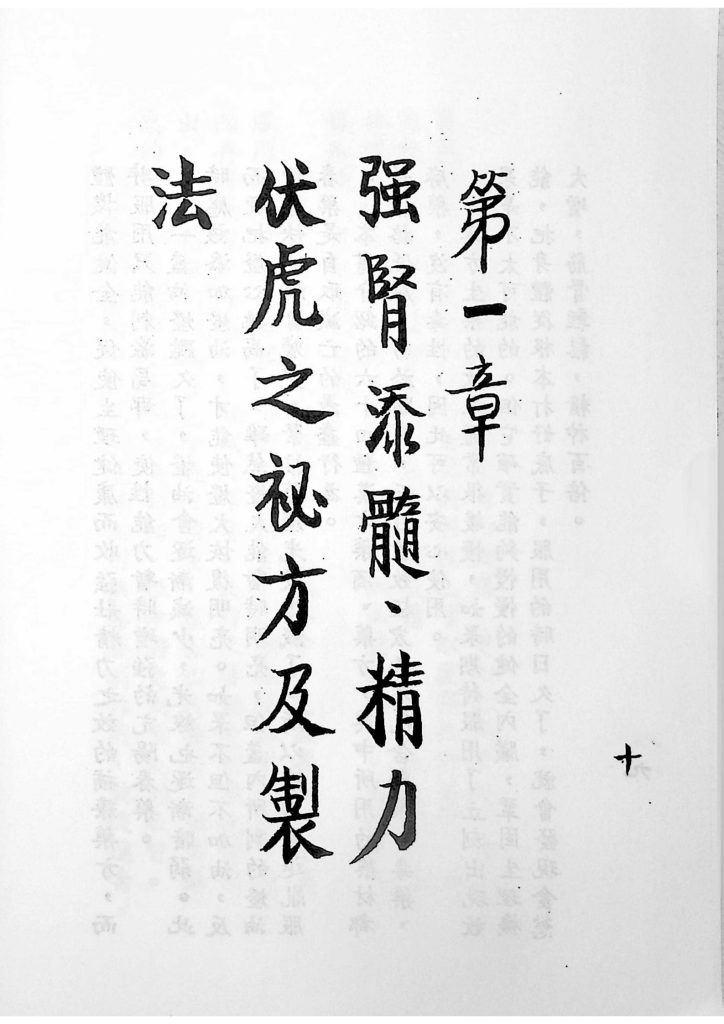 第一章
强腎添髓、精力
伏虎之祕方及製
法
十